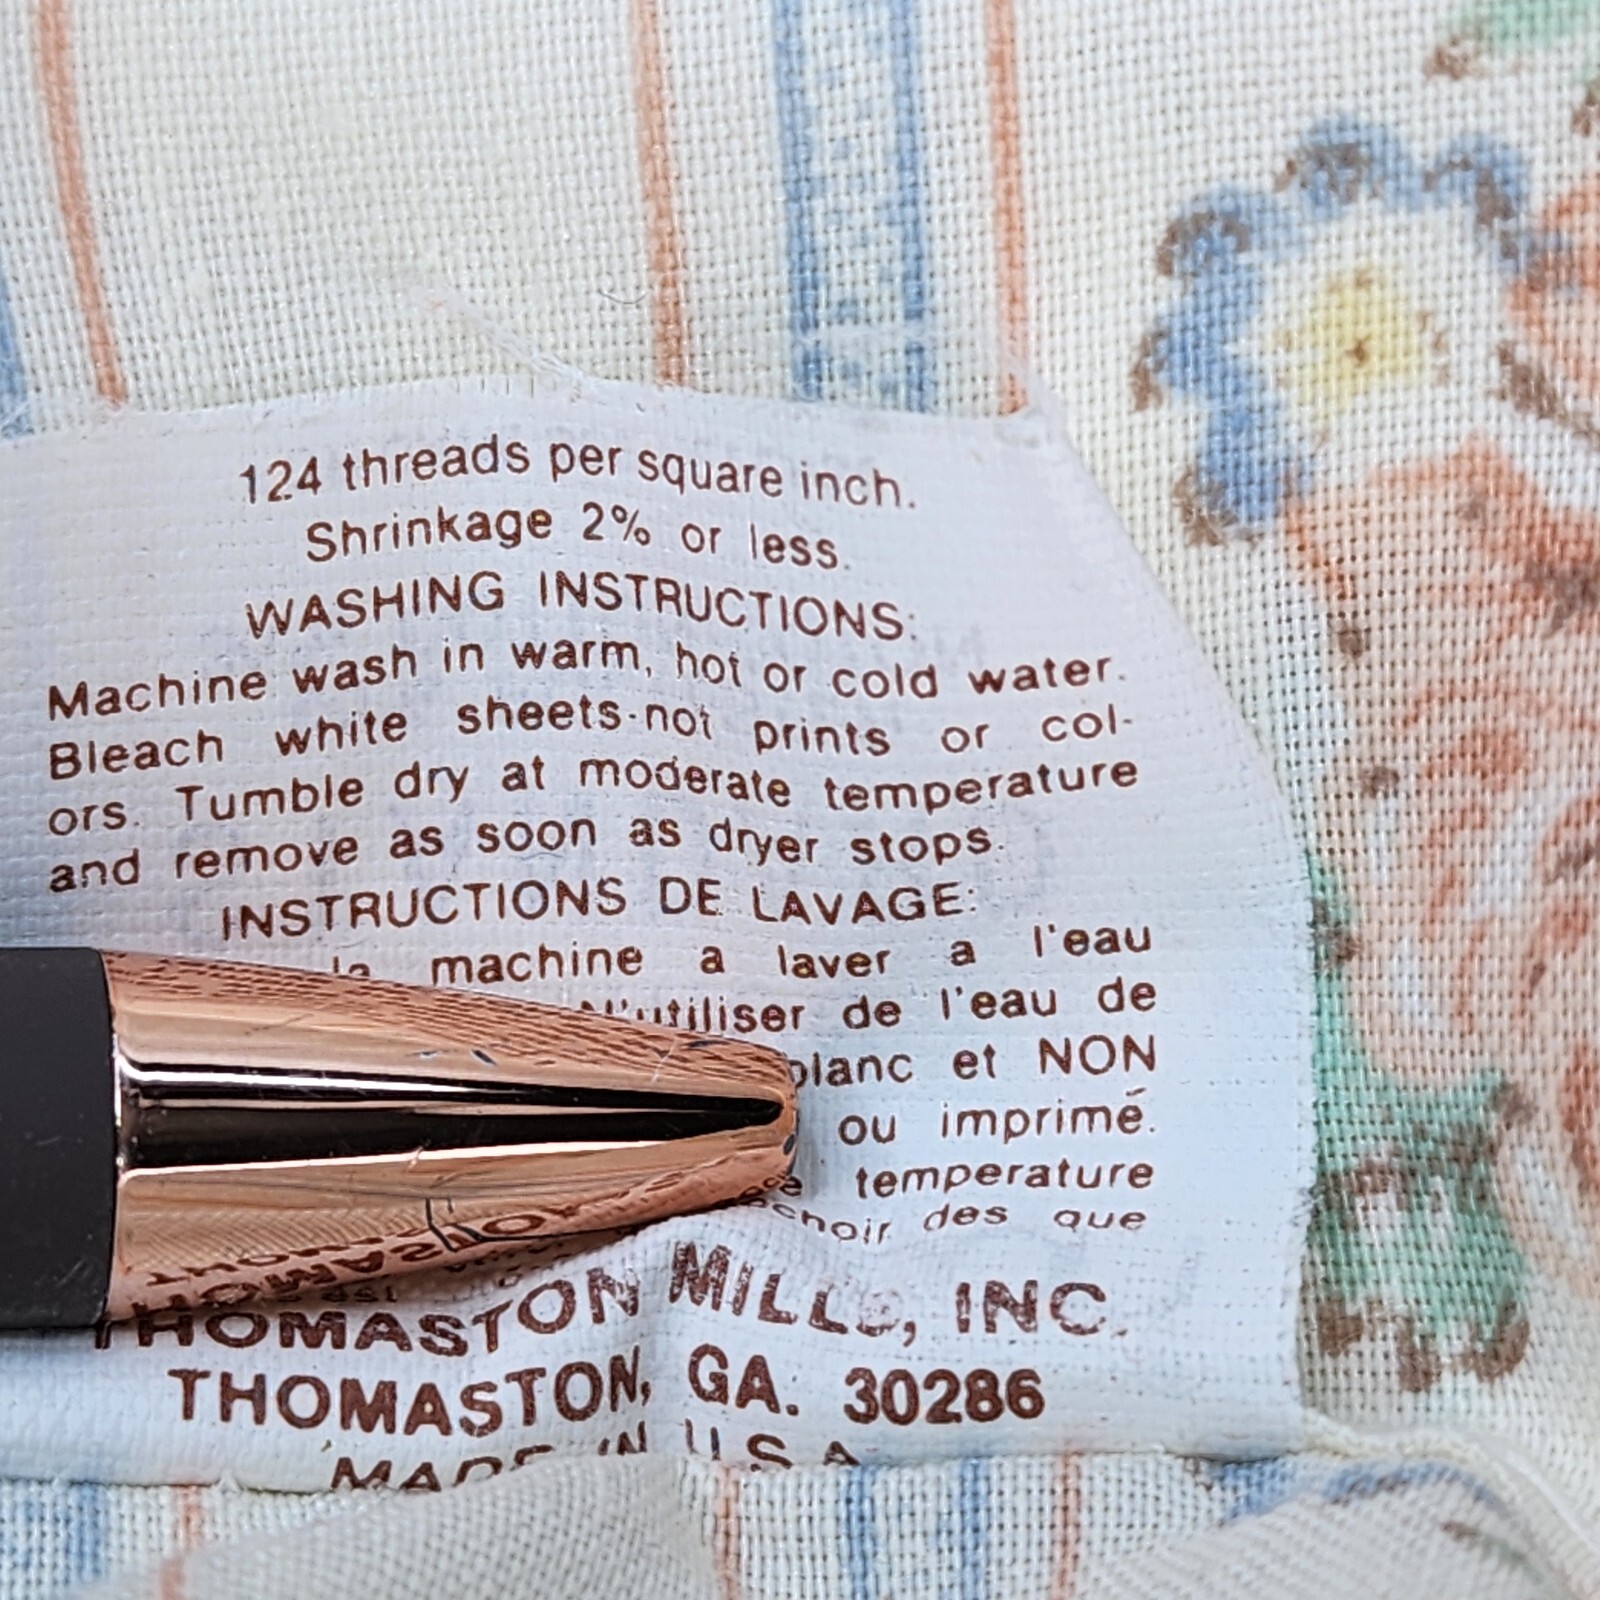 124 threads per square inch.
Shrinkage 2% or less.
WASHING INSTRUCTIONS:
Machine wash in warm, hot or cold water.
Bleach white sheets-not prints or col-
ors. Tumble dry at moderate temperature
and remove as soon as dryer stops.
INSTRUCTIONS DE LAVAGE:
la machine a laver a l'eau
N'utiliser de l'eau de
blanc et NON
ou imprimé.
temperature
des que
THOMASTON MILLS, INC.
THOMASTON, GA. 30286
MADE IN U.S.A.